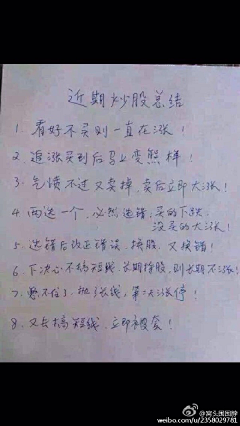 近期炒股总结
1. 看好不买则一直在涨！
2. 追涨买到后马上变熊样！
3. 气愤不过又卖掉，卖后立即大涨！
4 两选一个，必然选错，买的下跌
没买的大涨！
5 选错后改正错误，换股，又换错！
6 下决心不搞短线，长期持股，则长期不涨！
7. 熬不住了，抛了长线，第二天涨停！
8. 又去搞短线，立即被套！
@窝头围围脖
weibo.com/u/2358029781